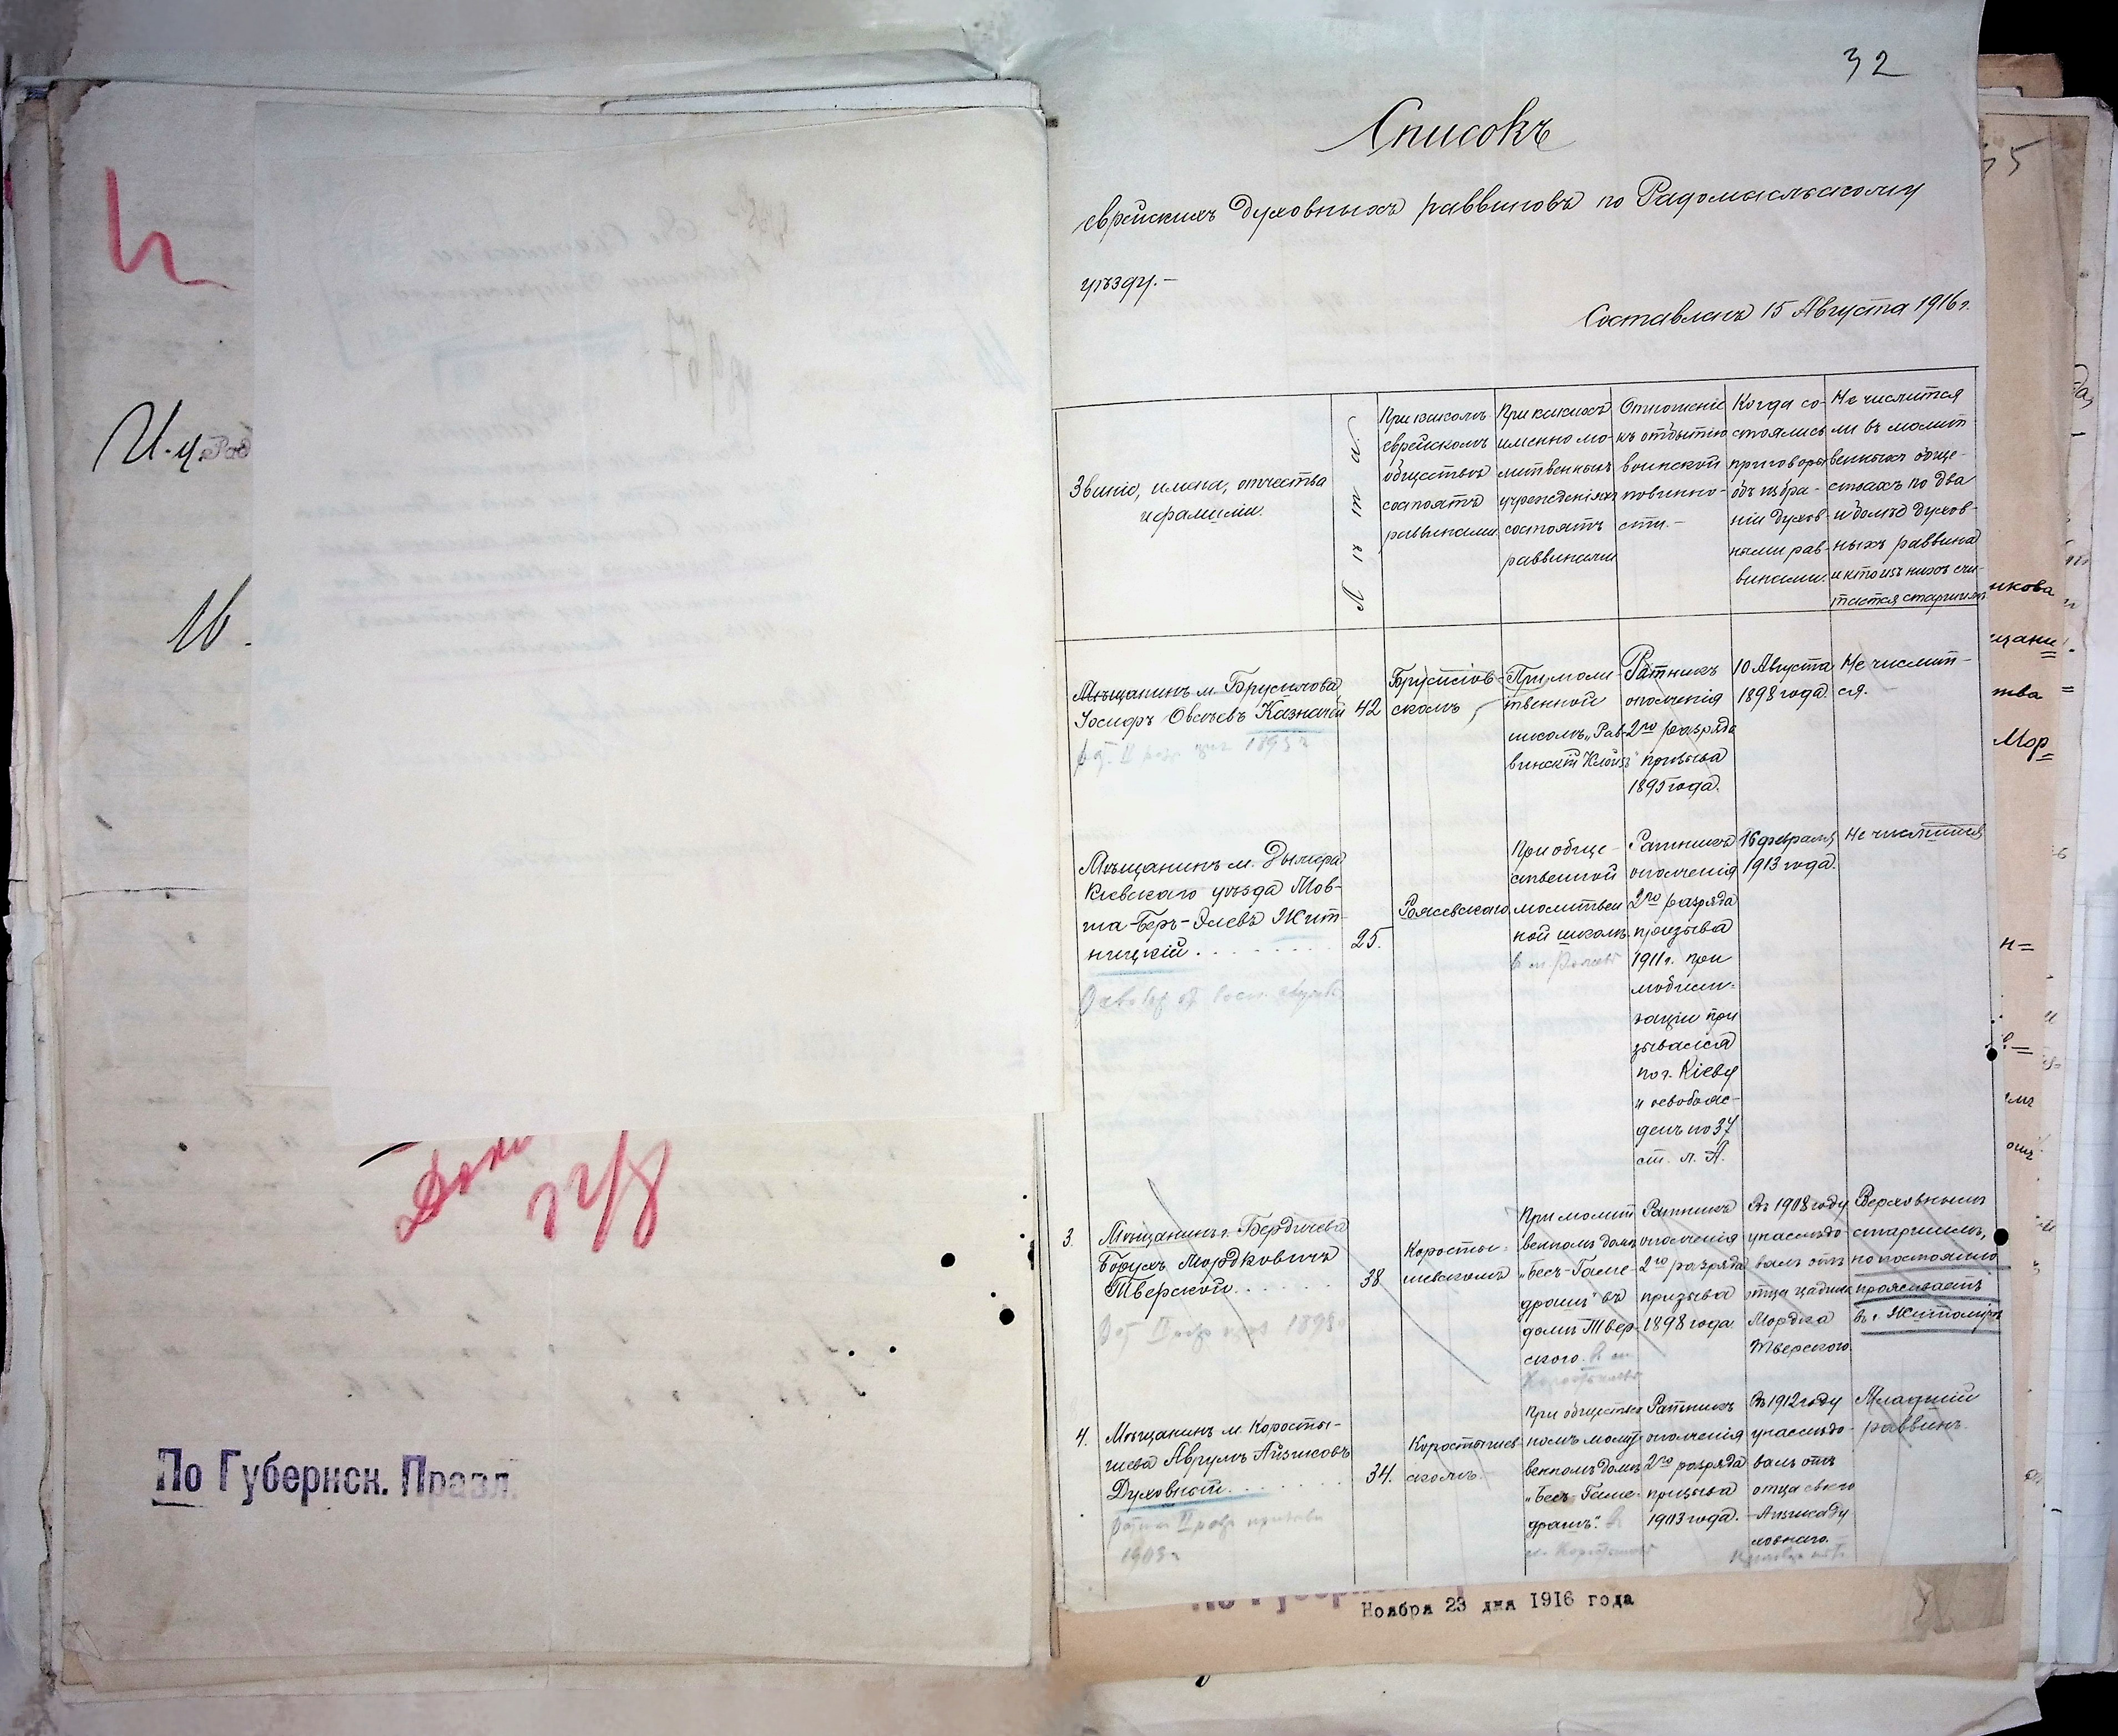 32
Списокъ
еврейскихъ духовныхъ раввиновъ по Радомысльскому
уѣзду.-
Составленъ 15 Августа 1916 г.
Званіе, имена, отчества
и фамиліи.
Лѣта.
При какомъ
еврейскомъ
обществѣ
состоятъ
раввинами.
При какихъ
именно мо-
литвенныхъ
учрежденіяхъ
состоятъ
раввинами
Отношеніе
къ отбытію
воинской
повинно-
сти.-
Когда со-
стоялись
приговоры
объ избра-
ніи духов-
ными рав-
винами.
Не числится
ли въ молит
венныхъ обще-
ствахъ по два
и болѣе духов-
ныхъ раввина
и кто изъ нихъ счи-
тается старшимъ
Мѣщанинъ м. Брусилова
Іосифъ Овсѣевъ Казначей
42
Брусилов-
скомъ
При моли
твенной
школѣ „Рав-
винскій Клойзъ"
Ратникъ
ополченія
2го разряда
призыва
1895 года.
10 Августа
1898 года.
Не числит-
ся.
Мѣщанинъ м. Дымера
Кіевскаго уѣзда Мов-
ша-Беръ-Элевъ Жит-
ницкій
25.
Рожевскаго
При обще-
ственной
молитвен
ной школѣ.
Ратникъ
ополченія
2го разряда
призыва
1911 г. при
мобили-
заціи при
зывался
по г. Кіеву
и освобож-
денъ по 37
ст. л. А.
16 февраля
1913 года.
Не числится
3.
Мѣщанинъ г. Бердичева
Борухъ Мордковичъ
Тверской
38
Коросты-
шевскомъ
При молит
венномъ домѣ
„Бесъ-Гаме-
дрошъ" въ
домѣ Твер-
ского.
Ратникъ
ополченія
2го разряда
призыва
1898 года.
Въ 1908 году
унаслѣдо
валъ отъ
отца цадика
Мордка
Тверского
Верховнымъ
старшимъ,
но постоянно
проживаетъ
въ г. Житомірѣ
4.
Мѣщанинъ м. Коросты-
шева Аврумъ Айзиковъ
Духовный
34.
Коростышев
скомъ.
При обществен
номъ молит
венномъ домѣ
„Бесъ-Гаме-
драшъ".
Ратникъ
ополченія
2го разряда
призыва
1903 года.
Въ 1912 году
унаслѣдо-
валъ отъ
отца своего
Младшій
раввинъ.
Ноября 23 дня 1916 года
И.ч.
16.
По Губернск. Правл.